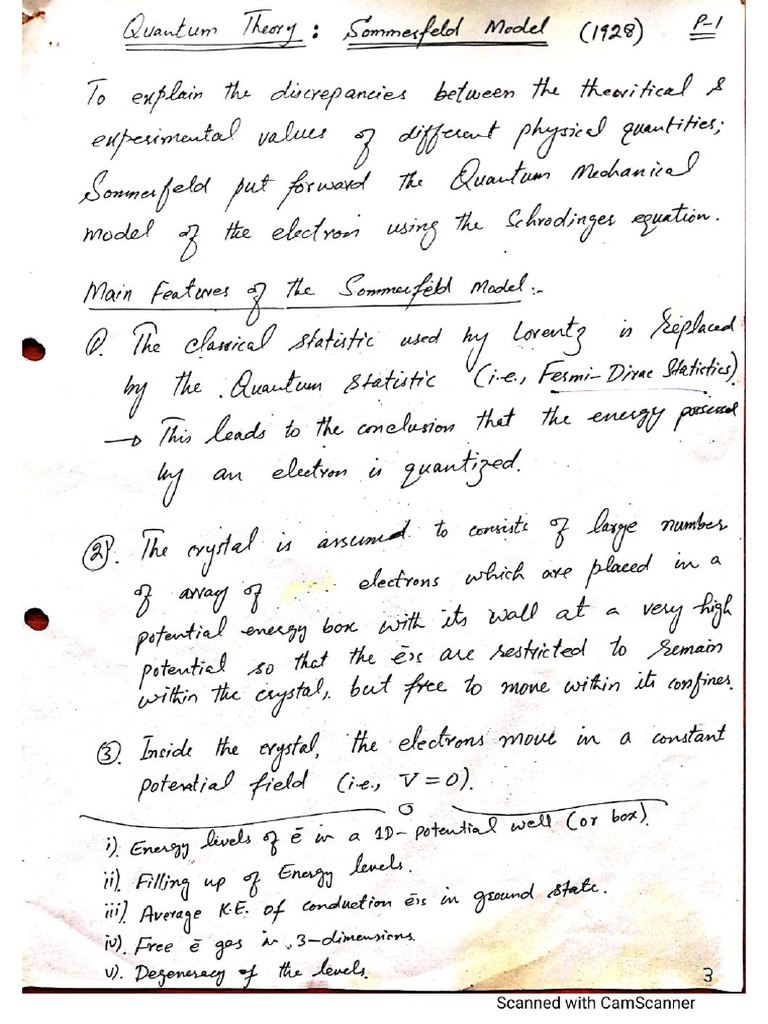 Quantum Theory: Sommerfeld Model (1928) P-1
To explain the discrepancies between the theoritical &
experimental values of different physical quantities;
Sommerfeld put forward the Quantum Mechanical
model of the electron using the Schrodingers equation.
Main Features of the Sommerfeld Model:-
1). The classical statistic used by Lorentz is replaced
by the Quantum statistic (i.e., Fermi-Dirac Statistics).
→ This leads to the conclusion that the energy possessed
by an electron is quantized.
2). The crystal is assumed to consists of large number
of array of electrons which are placed in a
potential energy box with its wall at a very high
potential so that the ēs are restricted to remain
within the crystal, but free to move within its confines.
3). Inside the crystal, the electrons move in a constant
potential field (i.e., V=0).
i). Energy levels of ē in a 1D-potential well (or box).
ii). Filling up of Energy levels.
iii). Average K.E. of conduction ēs in ground state.
iv). Free ē gas in 3-dimensions.
v). Degeneracy of the levels.
3
Scanned with CamScanner